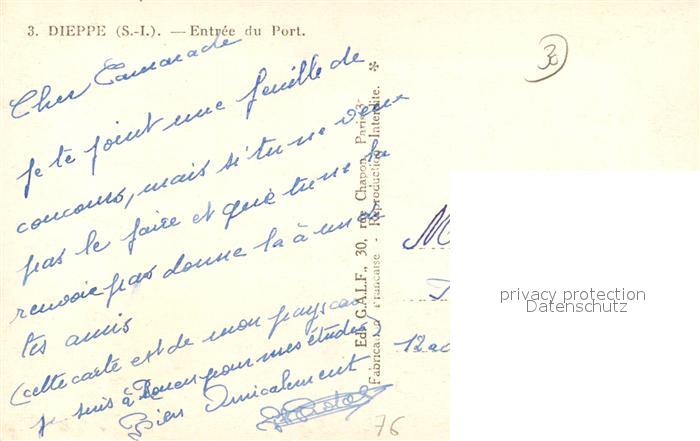 3. DIEPPE (S.-I.). — Entrée du Port.
Cher Camarade
je te joint une feuille de
concours, mais si tu ne veux
pas le faire et que tu ne la
renvoie pas donne la à un de
tes amis
(cette carte est de mon pays car
je suis à Rouen pour mes études)
Bien Amicalement
Edit. G.A.L.F., 30, rue Chapon, Paris-3
Fabrication Française - Reproduction Interdite. *
M
12
privacy protection
Datenschutz
76